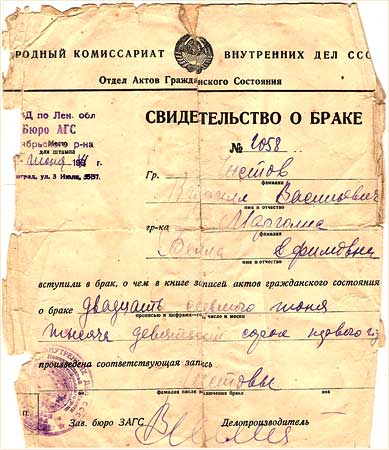 РОДНЫЙ КОМИССАРИАТ ВНУТРЕННИХ ДЕЛ СССР
Отдел Актов Гражданского Состояния
Д по Лен. обл
Бюро АГС
брьского р-на
Место
для штампа
град, ул. 3 Июля, 55/57.
СВИДЕТЕЛЬСТВО О БРАКЕ
№ 2058
Гр.
фамилия
Васильевич
имя и отчество
гр-ка Марголис
фамилия
Бэлла Ефимовна
имя и отчество
вступили в брак, о чем в книге записей актов гражданского состояния
о браке Двадцать седьмого июня
прописью и цифрами число и месяц
тысяча девятьсот сорок первого г
произведена соответствующая запись
фамилия после заключения брака
Зав. бюро ЗАГС
Делопроизводитель